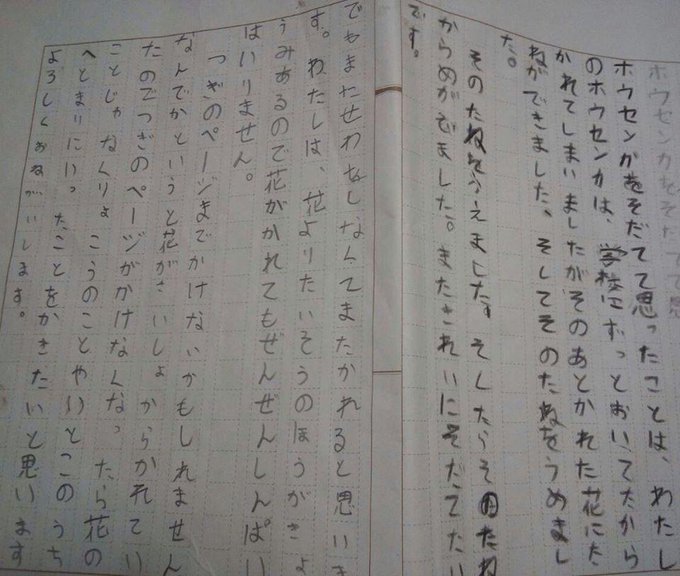 ホウセンカをそだてて思
ホウセンカをそだてて思ったことは、わたし
のホウセンカは、学校にずっとおいてたから
かれてしまいましたがそのあとかれた花にた
ねができました、そしてそのたねをうめまし
た。
そのたねをうえました。そしたらそのたね
からめがでました。またきれいにそだてたい
です。
でもまたせわをしなくてまたかれると思いま
す。わたしは、花よりたいそうのほうがきょ
うみあるので花がかれてもぜんぜんしんぱい
はいりません。
つぎのページまでかけないかもしれません
なんでかというと花がさいしょからかれてい
たのでつぎのページがかけなくなったら花の
ことじゃなくりょこうのことやいとこのうち
へとまりにいったことをかきたいと思います
よろしくおねがいします。